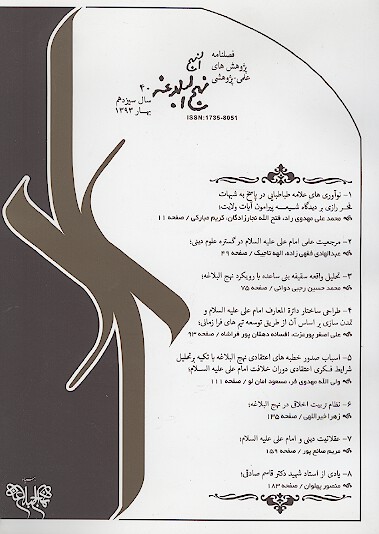 فصلنامه
پژوهش های
علمی-پژوهشی
نهج البلاغه
۴۰
سال سیزدهم
بهار ۱۳۹۳
ISSN:1735-8051
۱- نوآوری های علامه طباطبایی در پاسخ به شبهات
فخر رازی بر دیدگاه شیعه پیرامون آیات ولایت؛
محمد علی مهدوی راد، فتح الله نجارزادگان، کریم مبارکی / صفحه ۱۱
۲- مرجعیت علمی امام علی علیه السلام در گستره علوم دینی؛
عبدالهادی فقهی زاده، الهه تاجیک / صفحه ۴۹
۳- تحلیل واقعه سقیفه بنی ساعده با رویکرد نهج البلاغه؛
محمد حسین رجبی دوانی / صفحه ۷۵
۴- طراحی ساختار دائرة المعارف امام علی علیه السلام و
تمدن سازی بر اساس آن از طریق توسعه تیم های فرا زمانی؛
علی اصغر پورعزت، افسانه دهقان پور فراشاه / صفحه ۹۳
۵- اسباب صدور خطبه های اعتقادی نهج البلاغه با تکیه بر تحلیل
شرایط فکری اعتقادی دوران خلافت امام علی علیه السلام؛
ولی الله مهدوی فر، مسعود امان لو / صفحه ۱۱۱
۶- نظام تربیت اخلاق در نهج البلاغه؛
زهرا خیراللهی / صفحه ۱۳۵
۷- عقلانیت دینی و امام علی علیه السلام؛
مریم صانع پور / صفحه ۱۵۹
۸- یادی از استاد شهید دکتر قاسم صادقی؛
منصور پهلوان / صفحه ۱۸۳